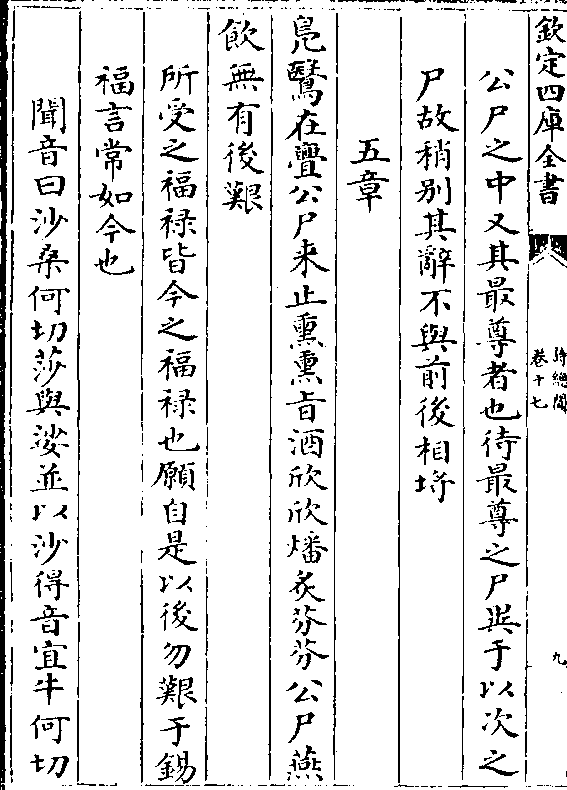 欽定四庫全書
詩總聞
卷十七
九
公尸之中又其最尊者也待最尊之尸異于以次之
尸故稍别其辭不與前後相埒
五章
鳬鷖在亹公尸來止熏熏旨酒欣欣燔炙芬芬公尸燕
飲無有後艱
所受之福禄皆今之福禄也願自是以後勿艱于錫
福言常如今也
聞音曰沙桑何切莎與娑並以沙得音宜牛何切